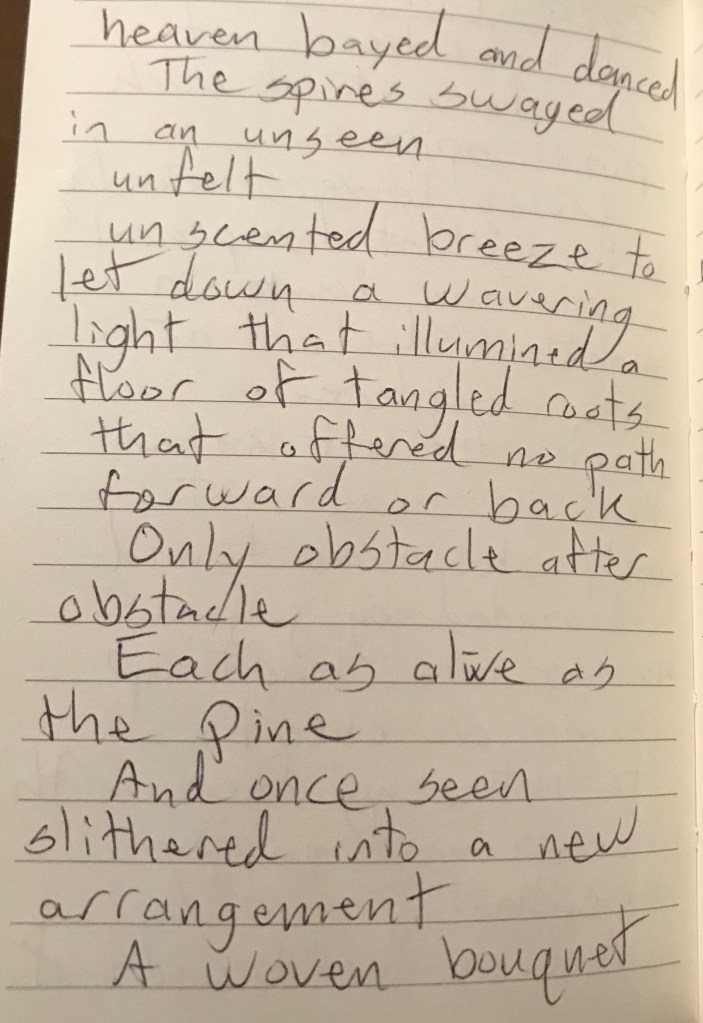 heaven bayed and danced
The spires swayed
in an unseen
unfelt
unscented breeze to
let down a wavering
light that illumined a
floor of tangled roots
that offered no path
forward or back
Only obstacle after
obstacle
Each as alive as
the pine
And once seen
slithered into a new
arrangement
A woven bouquet